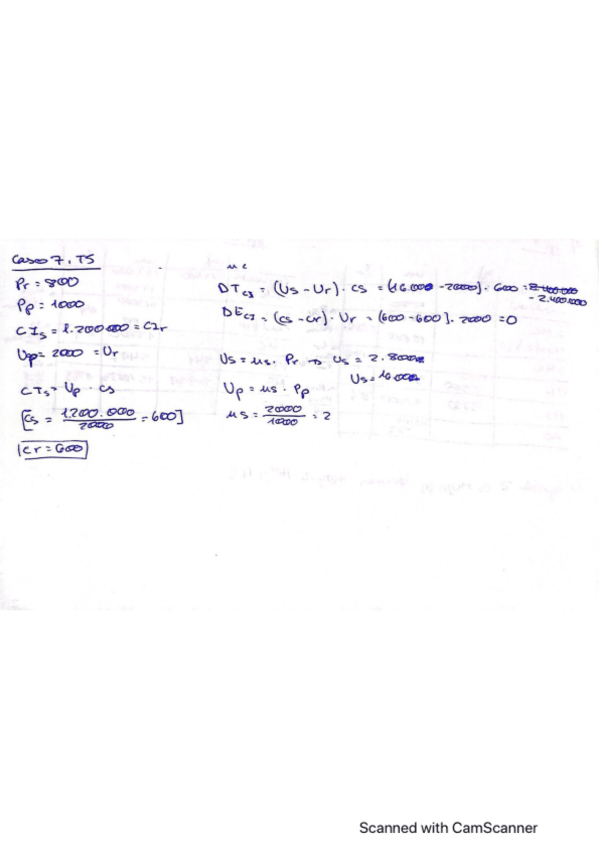 Caso 7. T5
Pr = 800
Pp = 1000
CIs = 1.200.000 = CIr
Up = 2000 = Ur
CIs = Up · cs
[cs = 1200.000 / 2000 = 600]
cr = 600
DTcI = (Us - Ur) · cs = (16.000 - 2000) · 600 =
- 2.400.000
DEcI = (cs - cr) · Ur = (600 - 600) · 2000 = 0
Us = us · Pr → Us = 2 · 800
Us = 16.000
Up = us · Pp
us = 2000 / 1000 = 2
Scanned with CamScanner